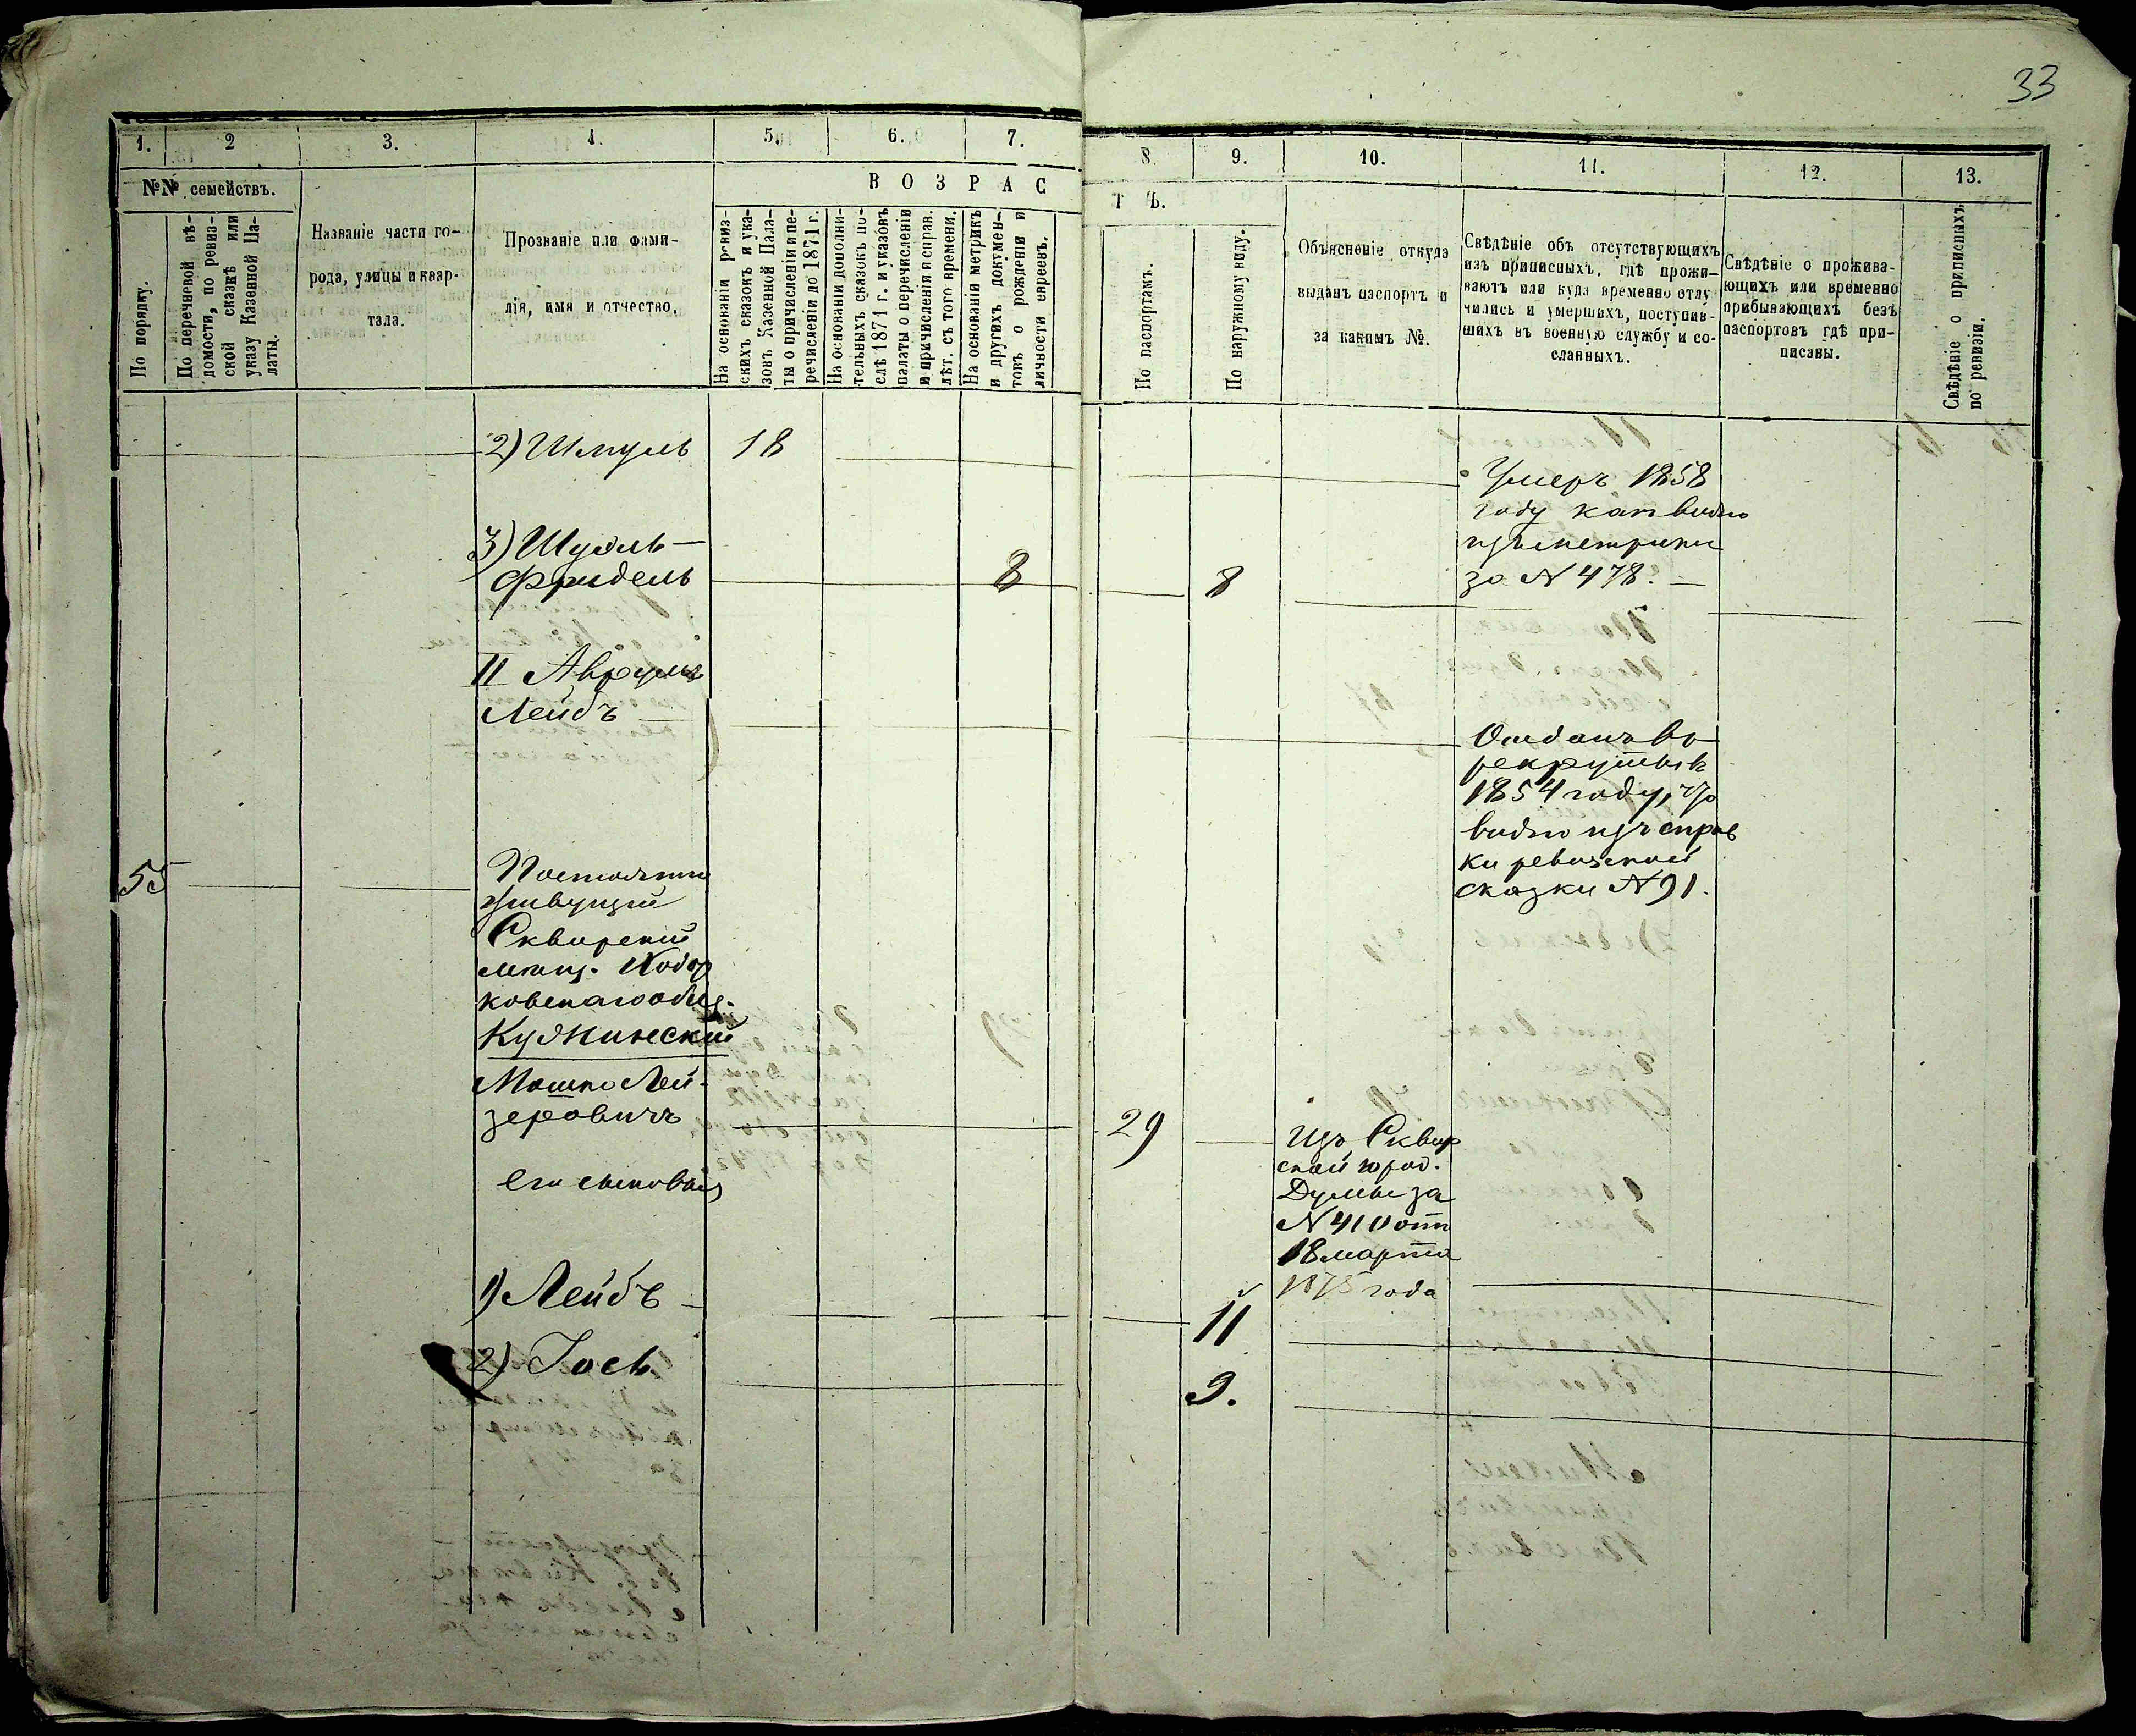 33
1.
2
3.
4.
5
6.
7.
8.
9.
10.
11.
12.
13.
№№ семействъ.
В О З Р А С
Т Ъ.
По порядку.
По перечневой вѣ-
домости, по ревиз-
ской сказкѣ или
указу Казенной Па-
латы.
Названіе части го-
рода, улицы и квар-
тала.
Прозваніе или фами-
лія, имя и отчество.
На основаніи ревиз-
скихъ сказокъ и ука-
зовъ Казенной Пала-
ты о причисленіи и пе-
речисленіи до 1871 г.
На основаніи дополни-
тельныхъ сказокъ по-
слѣ 1871 г. и указовъ
палаты о перечисленіи
и причисленіи и справ.
лѣт. съ того времени.
На основаніи метрикъ
и другихъ докумен-
товъ о рожденіи и
личности евреевъ.
По паспортамъ.
По наружному виду.
Объясненіе откуда
выданъ паспортъ и
за какимъ №.
Свѣдѣніе объ отсутствующихъ
изъ приписныхъ, гдѣ прожи-
ваютъ или куда временно отлу
чились и умершихъ, поступив-
шихъ въ военную службу и со-
сланныхъ.
Свѣдѣніе о прожива-
ющихъ или временно
прибывающихъ безъ
паспортовъ гдѣ при-
писаны.
Свѣдѣніе о приписныхъ
по ревизіи.
2) Шмуль 18
Умеръ 1858
году как видно
изъ метрики
за N 478.
3)
Фридель 8 8
II Аврумъ
Лейбъ
Отданъ въ
рекруты въ
1854 году, что
видно изъ справ
ки ревизской
сказки N 91.
55
Постоянно
живущій
Сквирскій
мѣщ. Ходор
ковскаго общ.
Кужинскій
Мошко Лей-
зеровичъ 29
Изъ Сквир
ской город.
Думы за
N 410 отъ
18 марта
1875 года
Его сыновья
1) Лейбъ 11
2) Іось 9.